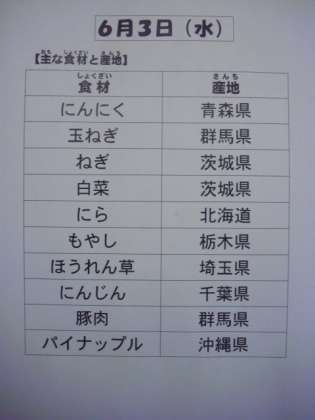 6月3日(水)
【主な食材と産地】
食材 産地
にんにく 青森県
玉ねぎ 群馬県
ねぎ 茨城県
白菜 茨城県
にら 北海道
もやし 栃木県
ほうれん草 埼玉県
にんじん 千葉県
豚肉 群馬県
パイナップル 沖縄県